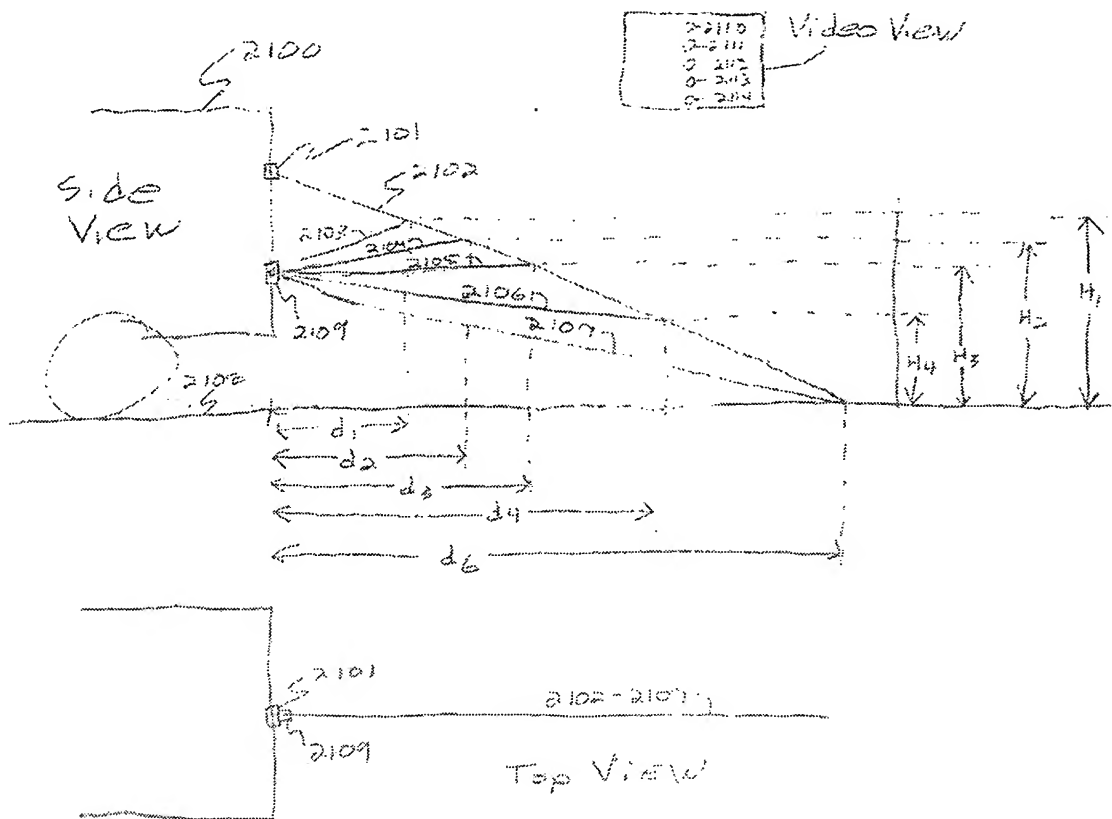 2110
2111
2112
2113
2114
Video View
2100
2101
2102
Side
View
2103
2104
2105
2106
2107
2109
H1
H2
H3
H4
d1
d2
d3
d4
d6
2101
2102-2107
2109
Top View